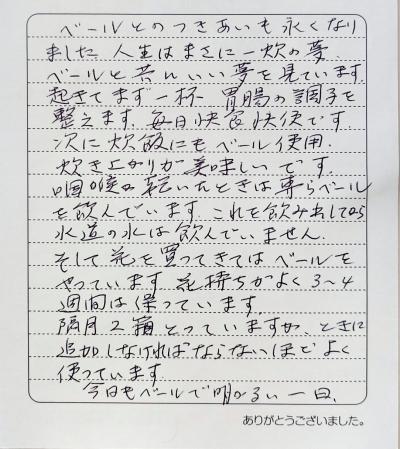 ベールとのつきあいも永くなり
ました 人生はまさに一炊の夢.
ベールと共にいい夢を見ています.
起きてまず一杯 胃腸の調子を
整えます. 毎日快食快便です
次に炊飯にもベール使用.
炊き上がりが美味しいです.
咽喉の乾いたときは専らベール
を飲んでいます. これを飲み出してから
水道の水は飲んでいません.
そして花を買ってきてはベールを
やっています. 花持ちがよく3〜4
週間は保っています
隔月2箱とっていますが、ときに
追加しなければならないほどよく
使っています.
今日もベールで明かるい一日、
ありがとうございました。